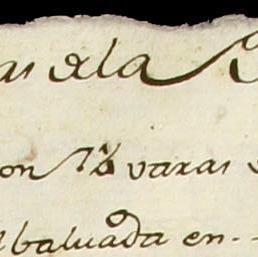 as de la
on 1½ varas
baluada en